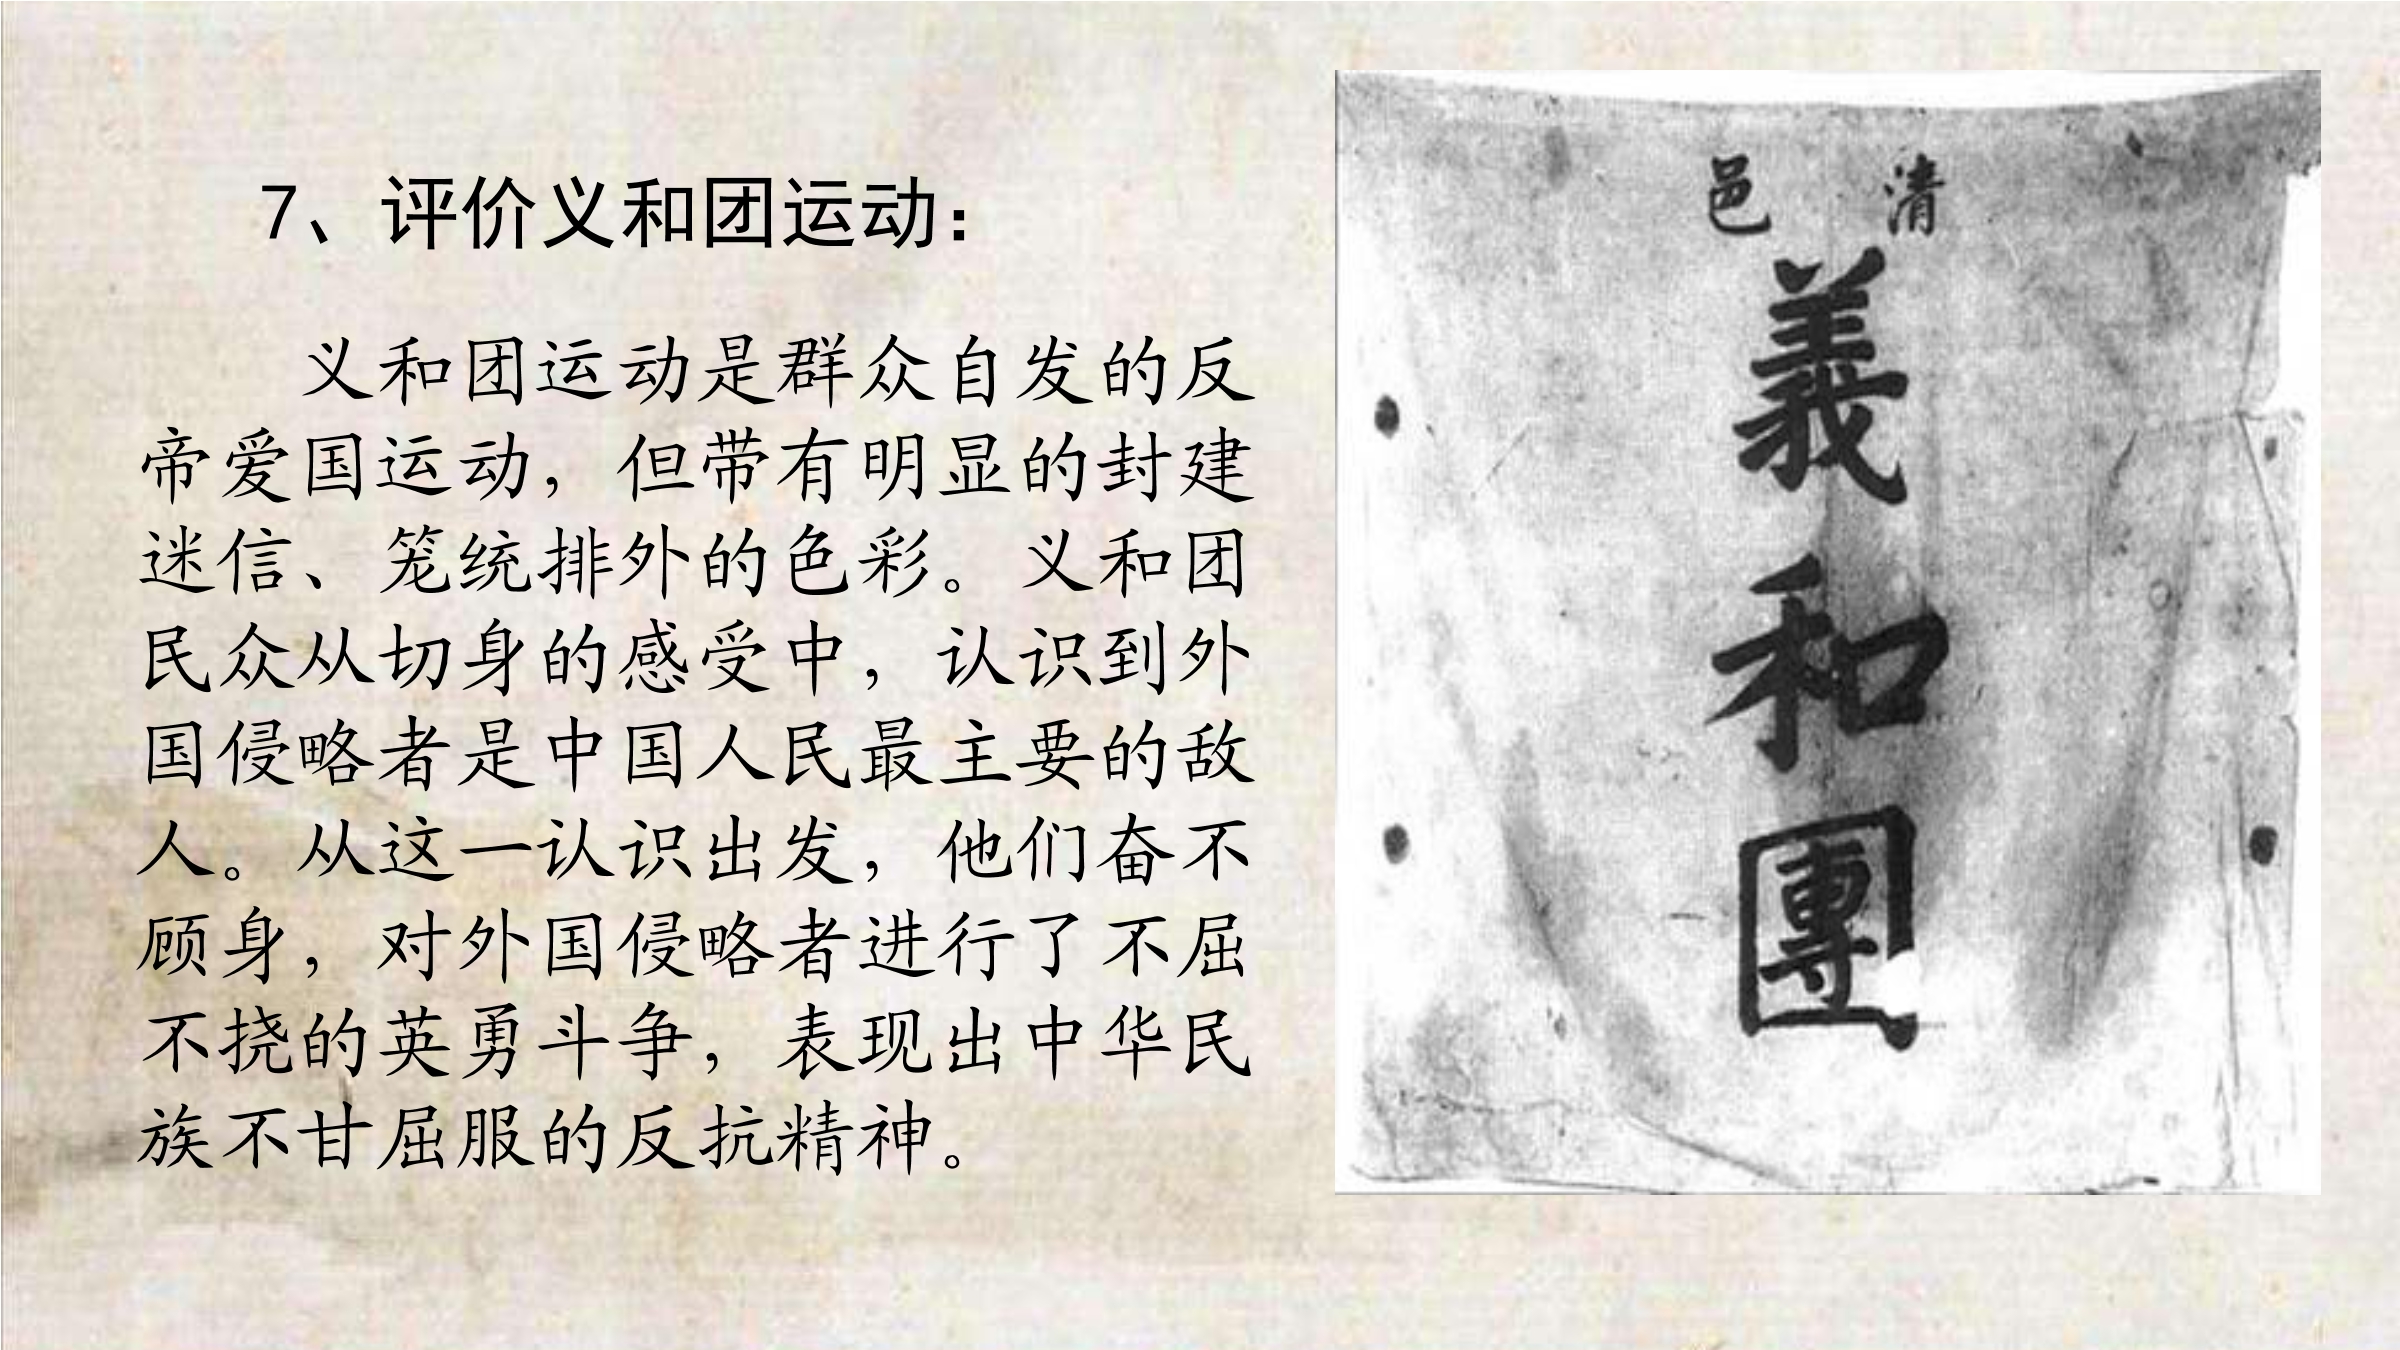 7、评价义和团运动：
义和团运动是群众自发的反
帝爱国运动，但带有明显的封建
迷信、笼统排外的色彩。义和团
民众从切身的感受中，认识到外
国侵略者是中国人民最主要的敌
人。从这一认识出发，他们奋不
顾身，对外国侵略者进行了不屈
不挠的英勇斗争，表现出中华民
族不甘屈服的反抗精神。
清邑
義和團